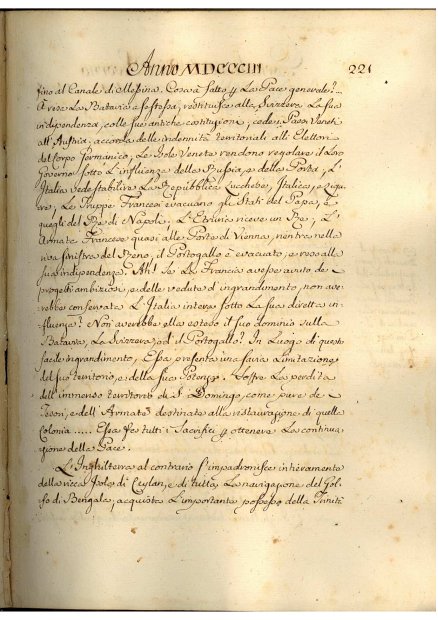 Anno MDCCCIII 221
fino al Canale di Messina. Cosa à fatto p. La Pace generale?...
À resa La Batavia a se stessa; restituisce alla Svizzera La sua
indipendenza, colle sue antiche costituzioni; cede i Paesi Veneti
all'Austria; accorda delle indennità territoriali alli Elettori
del Corpo Germanico; Le Isole Venete rendono regolare il Loro
Governo sotto L'influenza della Russia, e della Porta; L'
Italia vede stabilire La Repubblica Lucchese, Italica, e Ligu-
re; Le Truppe Francesi evacuano gli Stati del Papa, e
quegli del Re di Napoli. L'Etruria riceve un Re; L'
Armata Francese quasi alle Porte di Vienna, rientra nella
riva sinistra del Reno; il Portogallo è evacuato, e reso alla
sua indipendenza. Ah! Se La Francia avesse avuto de'
progetti ambiziosi, e delle vedute d'ingrandimento, non avre-
rebbe conservata L'Italia intera sotto La sua diretta in-
fluenza? Non averebbe ella esteso il suo dominio sulla
Batavia, La Svizzera, ed il Portogallo? In Luogo di questo
facile ingrandimento, Essa presenta una savia Limitazione
del suo territorio, e della sua Potenza. Soffre La perdita
dell'immenso territorio di S. Domingo, come pure de'
Tesori, e dell'Armate destinate alla restaurazione di quella
Colonia..... Essa fa tutti i Sacrifici p. ottenere La continua-
zione della Pace.
L'Inghilterra al contrario s'impadronisce intieramente
della ricca Isola di Ceylan, e di tutta La navigazione del Gol-
fo di Bengala; acquista L'importante possesso della Trinità